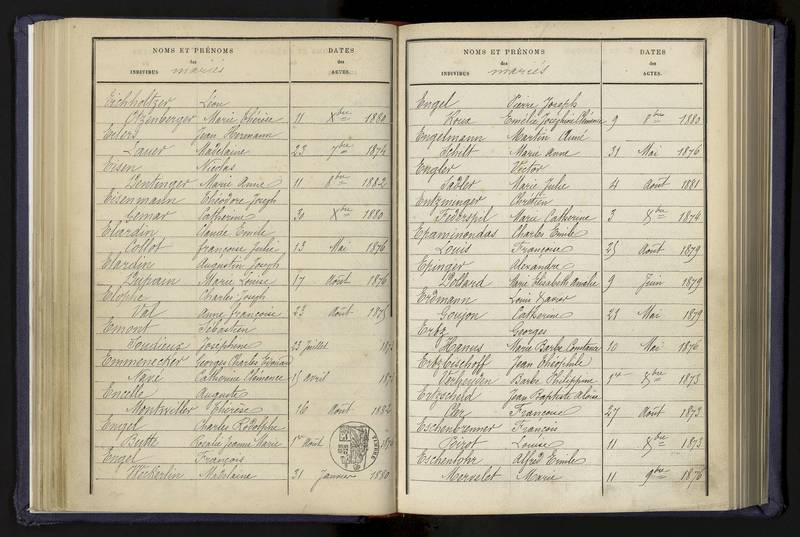 NOMS ET PRÉNOMS
des
INDIVIDUS mariés
DATES
des
ACTES.
Eichholtzer Léon
Otzenberger Marie Thérèse 11 Xbre 1880
Eilers Jean Hermann
Lauer Madelaine 23 7bre 1874
Eisen Nicolas
Bentinger Marie Anne 11 8bre 1882
Eisenmann Théodore Joseph
Gemar Catherine 30 Xbre 1880
Elardin Claude Emile
Collot françoise Julie 13 Mai 1876
Elardin Augustin Joseph
Marie Louise 17 Août 1876
Elophe Charles Joseph
Val Anne françoise 23 Août 1875
Emont Sébastien
Joséphine 23 Juillet
Emmenecker Georges Charles Edouard
Navé Catherine Clémence 15 avril
Encelle Auguste
Montwiller Thérèse 16 Août 1882
Engel Charles Rodolphe
Butte Rosalie Jeanne Marie 1er Août
Engel François
Weckerlin Madelaine 31 Janvier 1880
TIMBRE
NOMS ET PRÉNOMS
des
INDIVIDUS mariés
DATES
des
ACTES.
Engel Pierre Joseph
Roux Emélie Joséphine Clémence 9 8bre 1880
Engelmann Martin Aimé
Schilt Marie Anne 31 Mai 1876
Engler Victor
Sadler Marie Julie 4 Août 1881
Entzminger Chrétien
Federspil Marie Catherine 3 Xbre 1874
Epaminondas Charles Emile
Louis Françoise 25 Août 1879
Epinger Alexandre
Dollard Marie Elisabeth Amalie 9 Juin 1879
Erdmann Louis Xavier
Goujon Catherine 23 Mai 1879
Erbz Georges
Hanus Marie Barbe Constance 10 Mai 1876
Erbzbischoff Jean Théophile
Barbe Philippine 1er Xbre 1873
Ertzscheid Jean Baptiste Aloïse
Françoise 27 Août 1872
Eschenbrenner François
Poirot Louise 11 Xbre 1873
Eschenlohr Alfred Emile
Mervelot Marie 11 9bre 1876